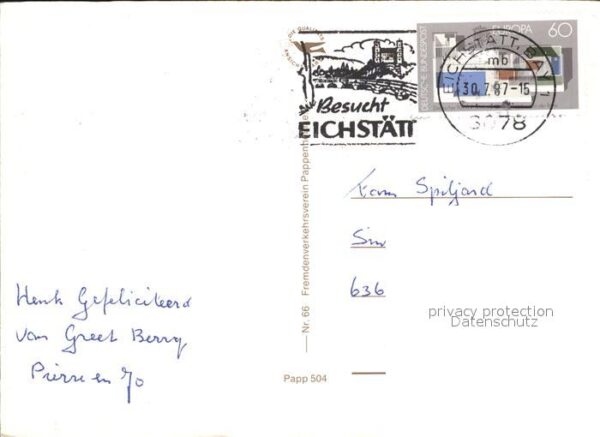 EUROPA 60
DEUTSCHE BUNDESPOST
EICHSTÄTT, BAY 1
mb
30.7.87-15
8078
Besucht
EICHSTÄTT
Nr. 66 Fremdenverkehrsverein Pappenheim
Papp 504
Fam Spiljard
636
privacy protection
Datenschutz
Henk Gefeliciteerd
van Greet Berry
Pierre en Jo